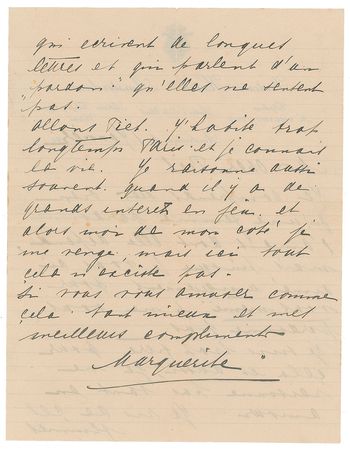 qui ecrivent de longues
lettres et qui parlent d'un
"pardon" qu'elles ne sentent
"pas.
allons Tiet. J'habite trop
longtemps Paris et je connais
la vie. Je raisonne aussi
souvent quand il y a de
grands interet en jeu, et
alors moi de mon coté je
me venge, mais ici tout
cela n'existe pas.
Si vous vous amuser comme
cela tant mieux et mes
meilleurs compliments
Marguerite